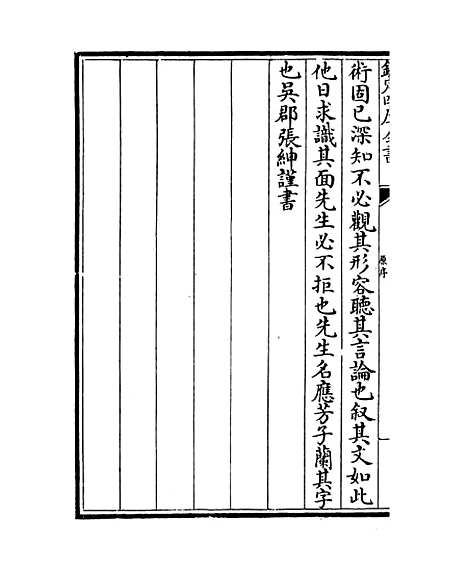 欽定四庫全書
原序
術固已深知不必觀其形容聽其言論也叙其文如此
他日求識其面先生必不拒也先生名應芳子蘭其字
也吳郡張紳謹書